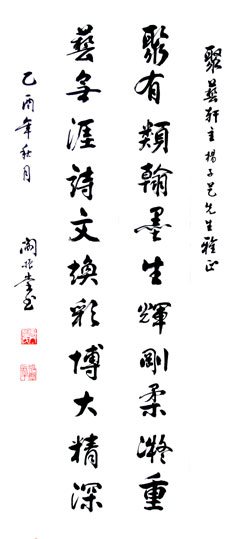 聚藝軒主楊子艺先生雅正
聚有類翰墨生輝剛柔凝重
藝無涯詩文煥彩博大精深
乙酉年秋月